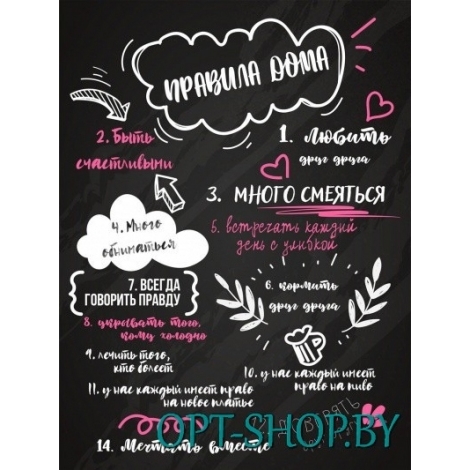 ПРАВИЛА ДОМА
1. Любить
друг друга
2. Быть
счастливыми
3. МНОГО СМЕЯТЬСЯ
4. Много
обниматься
5. встречать каждый
день с улыбкой
6. кормить
друг друга
7. ВСЕГДА
ГОВОРИТЬ ПРАВДУ
8. укрывать того,
кому холодно
9. лечить того,
кто болеет
10. у нас каждый имеет
право на пиво
11. у нас каждый имеет право
на новое платье
14. Мечтать вместе
OPT-SHOP.BY